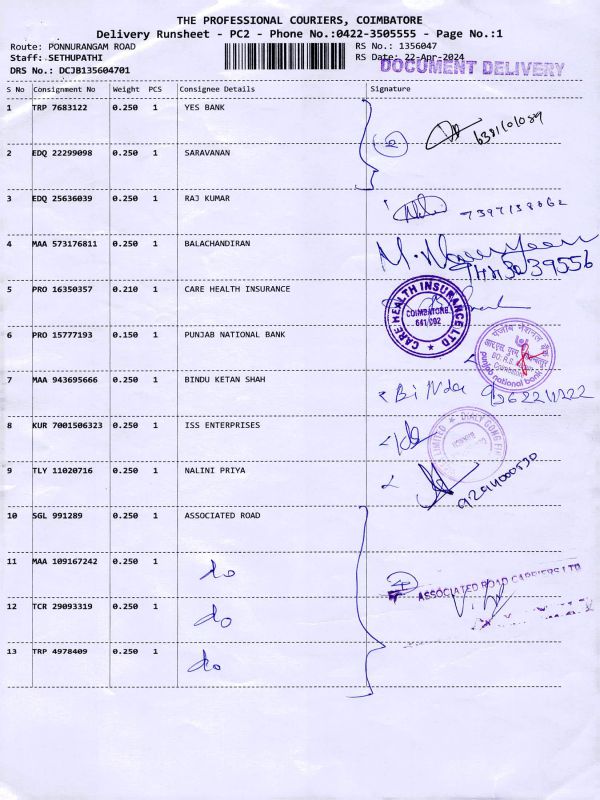 THE PROFESSIONAL COURIERS, COIMBATORE
Delivery Runsheet - PC2 - Phone No.:0422-3505555 - Page No.:1
Route: PONNURANGAM ROAD RS No.: 1356047
Staff: SETHUPATHI RS Date: 22-Apr-2024
DRS No.: DCJB135604701
DOCUMENT DELIVERY
S No Consignment No Weight PCS Consignee Details Signature
1 TRP 7683122 0.250 1 YES BANK
2 EDQ 22299098 0.250 1 SARAVANAN
3 EDQ 25636039 0.250 1 RAJ KUMAR
4 MAA 573176811 0.250 1 BALACHANDIRAN
5 PRO 16350357 0.210 1 CARE HEALTH INSURANCE
CARE HEALTH INSURANCE LTD
COIMBATORE
641 002
6 PRO 15777193 0.150 1 PUNJAB NATIONAL BANK
punjab national bank
7 MAA 943695666 0.250 1 BINDU KETAN SHAH
8 KUR 7001506323 0.250 1 ISS ENTERPRISES
9 TLY 11020716 0.250 1 NALINI PRIYA
10 SGL 991289 0.250 1 ASSOCIATED ROAD
11 MAA 109167242 0.250 1 do
ASSOCIATED ROAD CARRIERS LTD
12 TCR 29093319 0.250 1 do
13 TRP 4978409 0.250 1 do